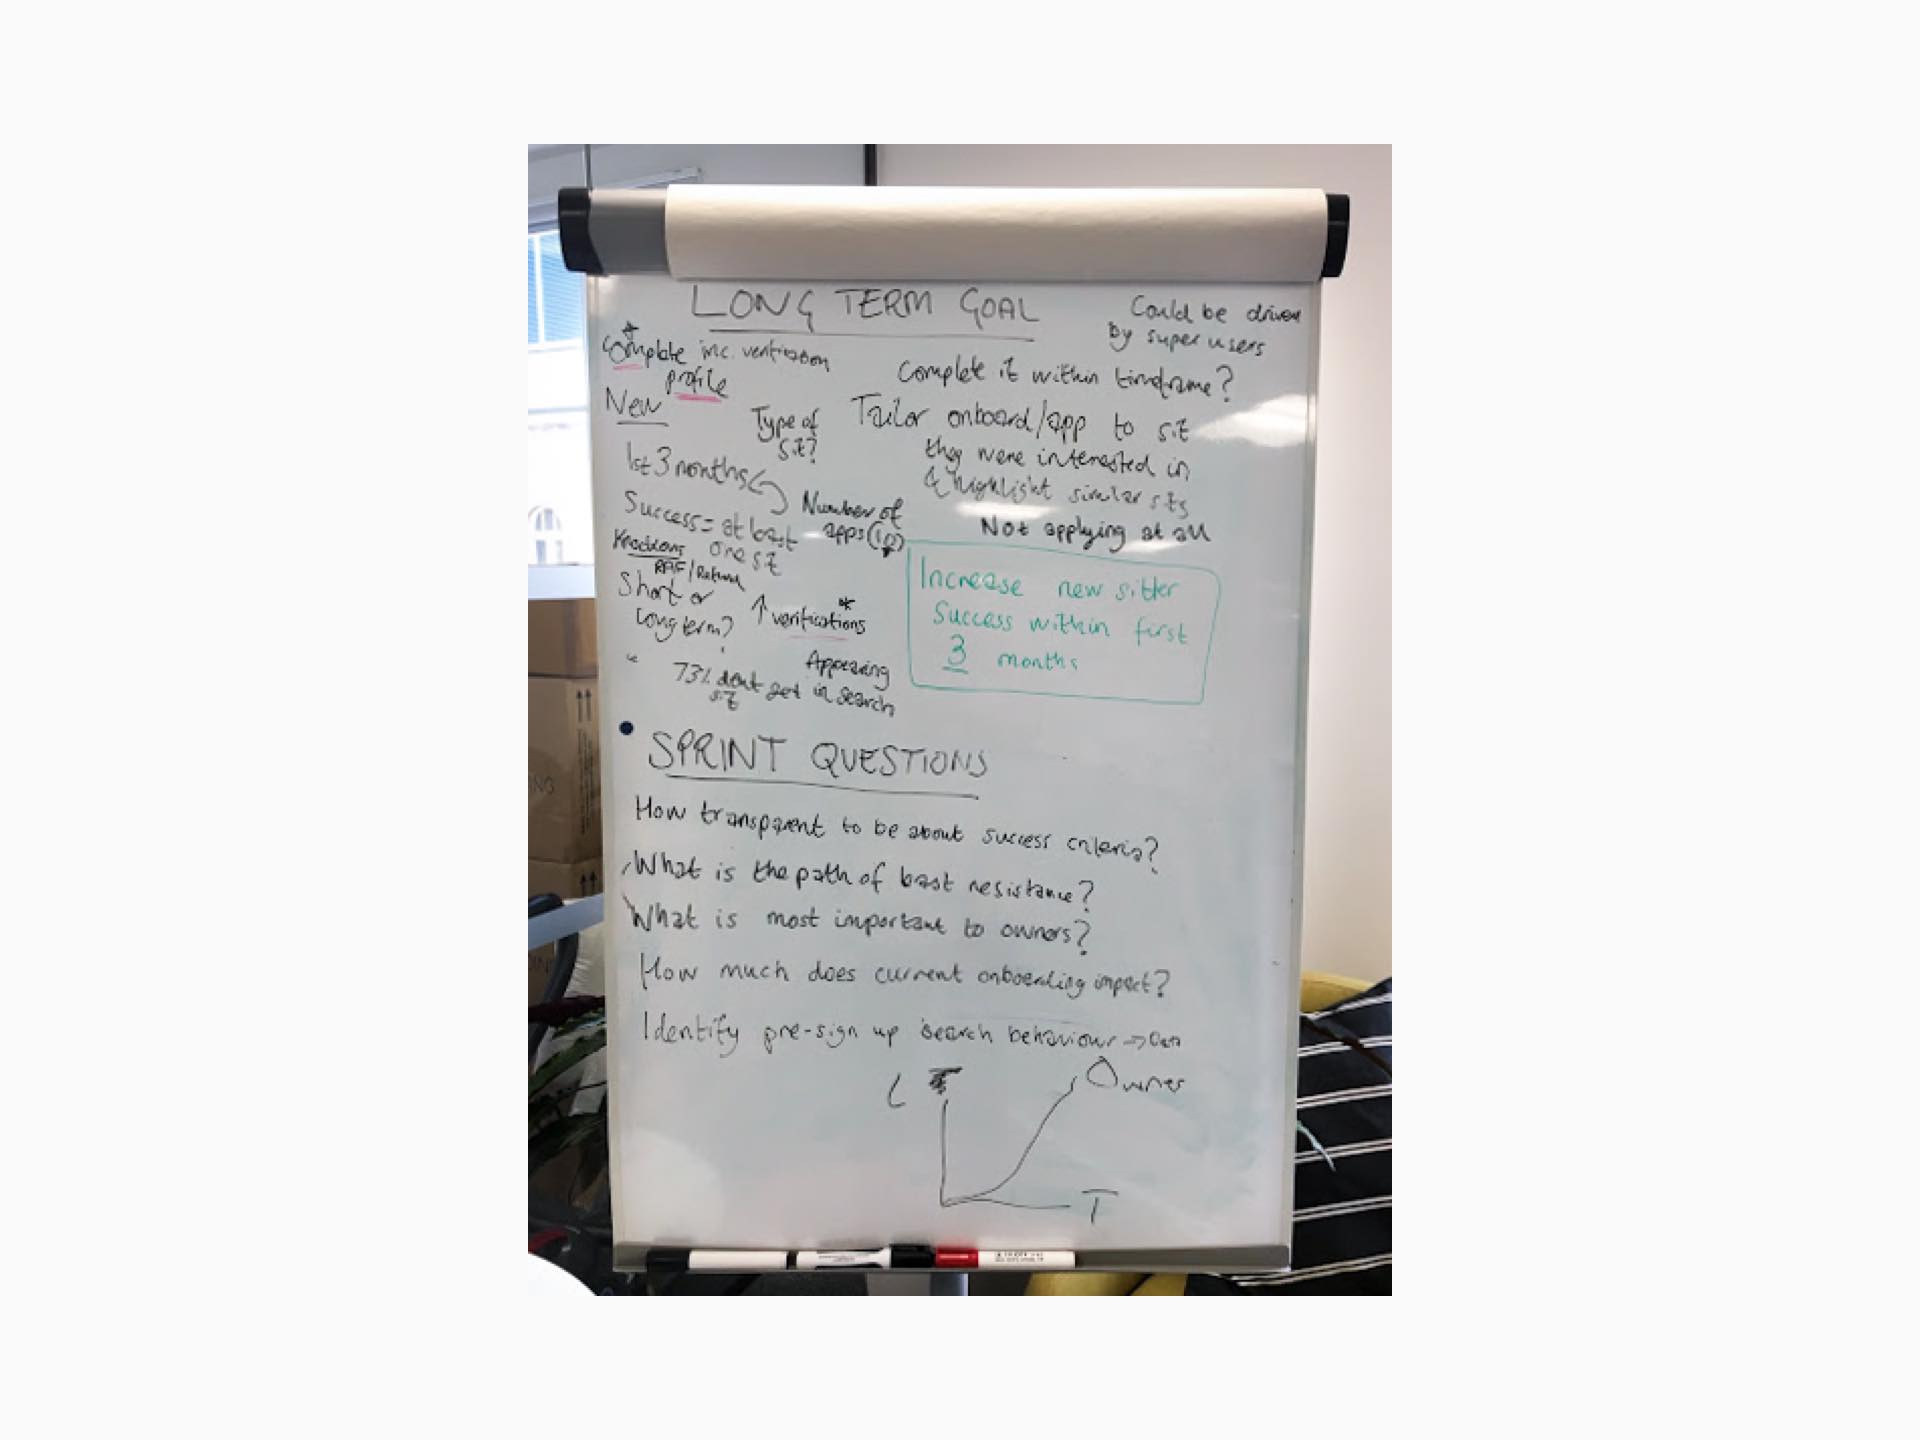 LONG TERM GOAL
Could be driven
by super users
* Complete inc. verification
profile
Complete it within timeframe?
New
Type of
sit?
Tailor onboard/app to sit
they were interested in
& highlight similar sits
1st 3 months
Number of
apps
Success = at least
one sit
Not applying at all
Knockons
RAF/Return
Short or
long term?
↑ verifications *
Increase new sitter
success within first
3 months
73% dont get
sit
Appearing
in search
SPRINT QUESTIONS
How transparent to be about success criteria?
What is the path of least resistance?
What is most important to owners?
How much does current onboarding impact?
Identify pre-sign up search behaviour → Data
L
Owner
T